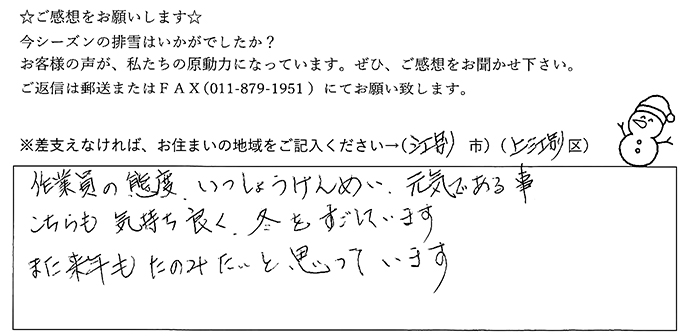 ☆ご感想をお願いします☆
今シーズンの排雪はいかがでしたか？
お客様の声が、私たちの原動力になっています。ぜひ、ご感想をお聞かせ下さい。
ご返信は郵送またはＦＡＸ（011-879-1951）にてお願い致します。
※差支えなければ、お住まいの地域をご記入ください→（江別 市）（上江別 区）
作業員の態度、いっしょうけんめい、元気である事
こちらも気持ち良く、冬をすごしています
また来年もたのみたいと思っています